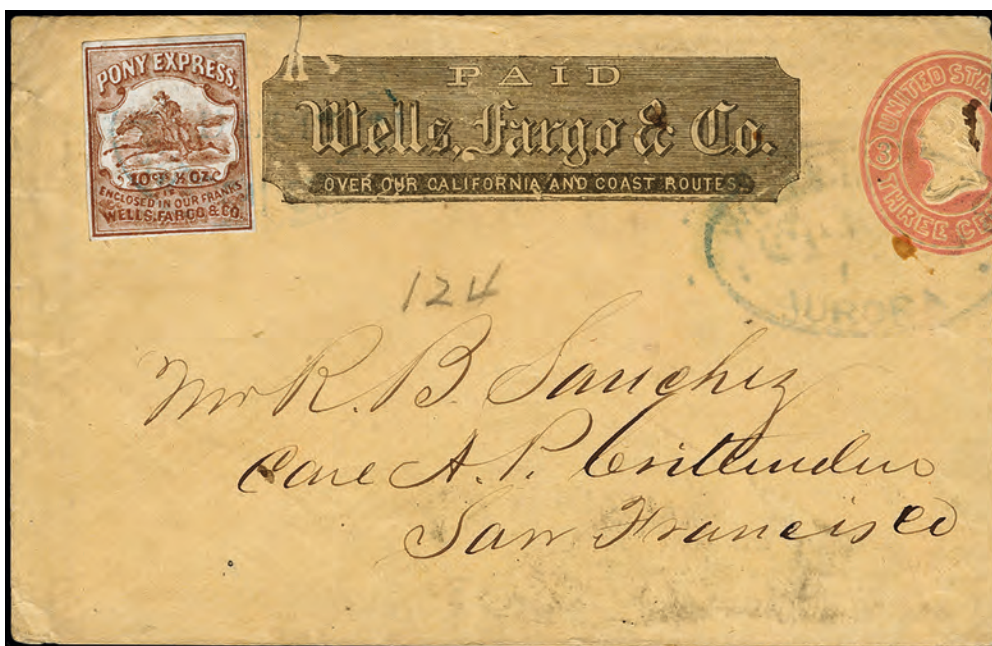 PONY EXPRESS.
10 cts ½ OZ.
IF
ENCLOSED IN OUR FRANKS
WELLS, FARGO & CO.
PAID
Wells, Fargo & Co.
OVER OUR CALIFORNIA AND COAST ROUTES.
UNITED STA
THREE CE
3
124
Mr R. B. Sanchez
Care A. P. Crittenden
San Francisco